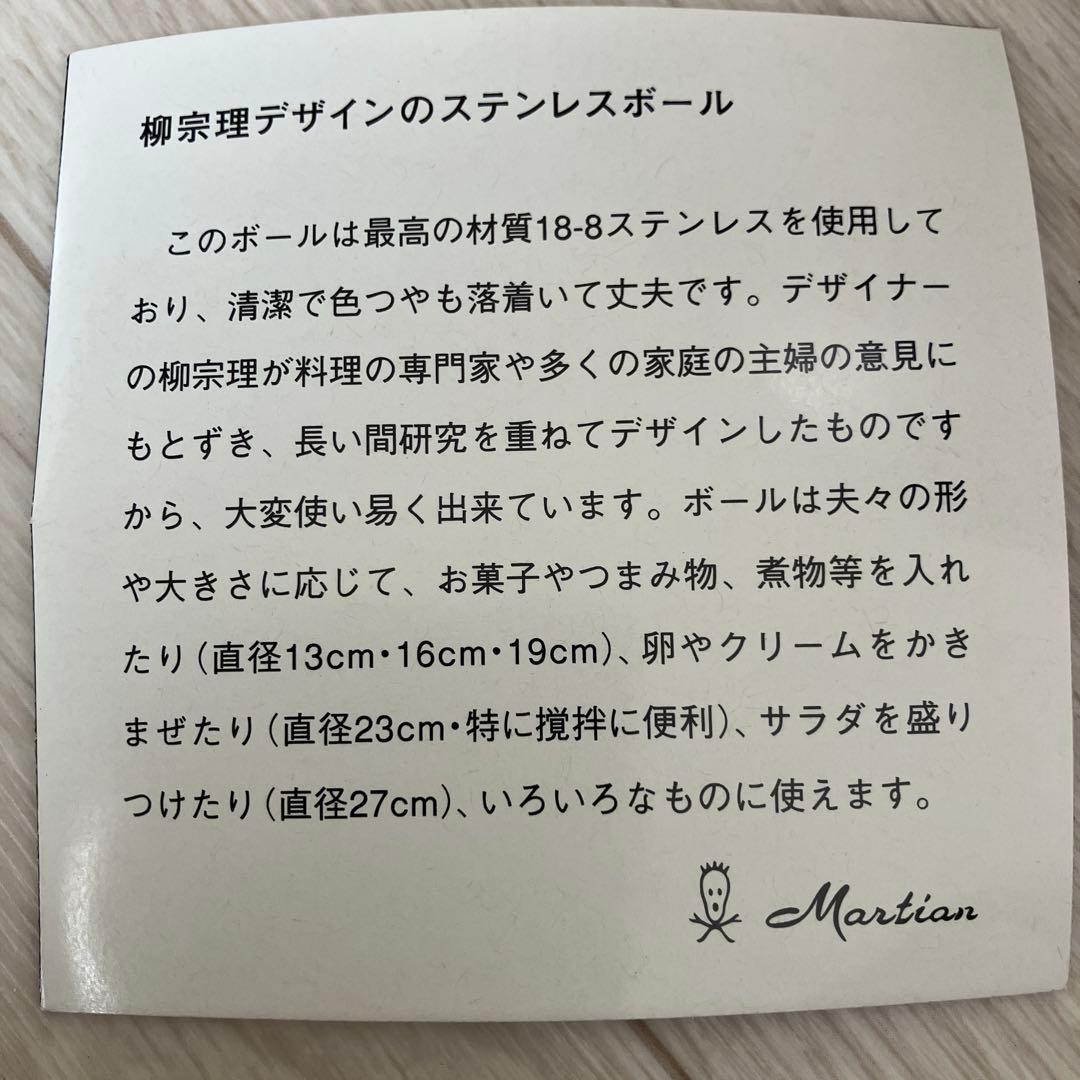 柳宗理デザインのステンレスボール
このボールは最高の材質18-8ステンレスを使用して
おり、清潔で色つやも落着いて丈夫です。デザイナー
の柳宗理が料理の専門家や多くの家庭の主婦の意見に
もとずき、長い間研究を重ねてデザインしたものです
から、大変使い易く出来ています。ボールは夫々の形
や大きさに応じて、お菓子やつまみ物、煮物等を入れ
たり（直径13cm・16cm・19cm）、卵やクリームをかき
まぜたり（直径23cm・特に撹拌に便利）、サラダを盛り
つけたり（直径27cm）、いろいろなものに使えます。
Martian